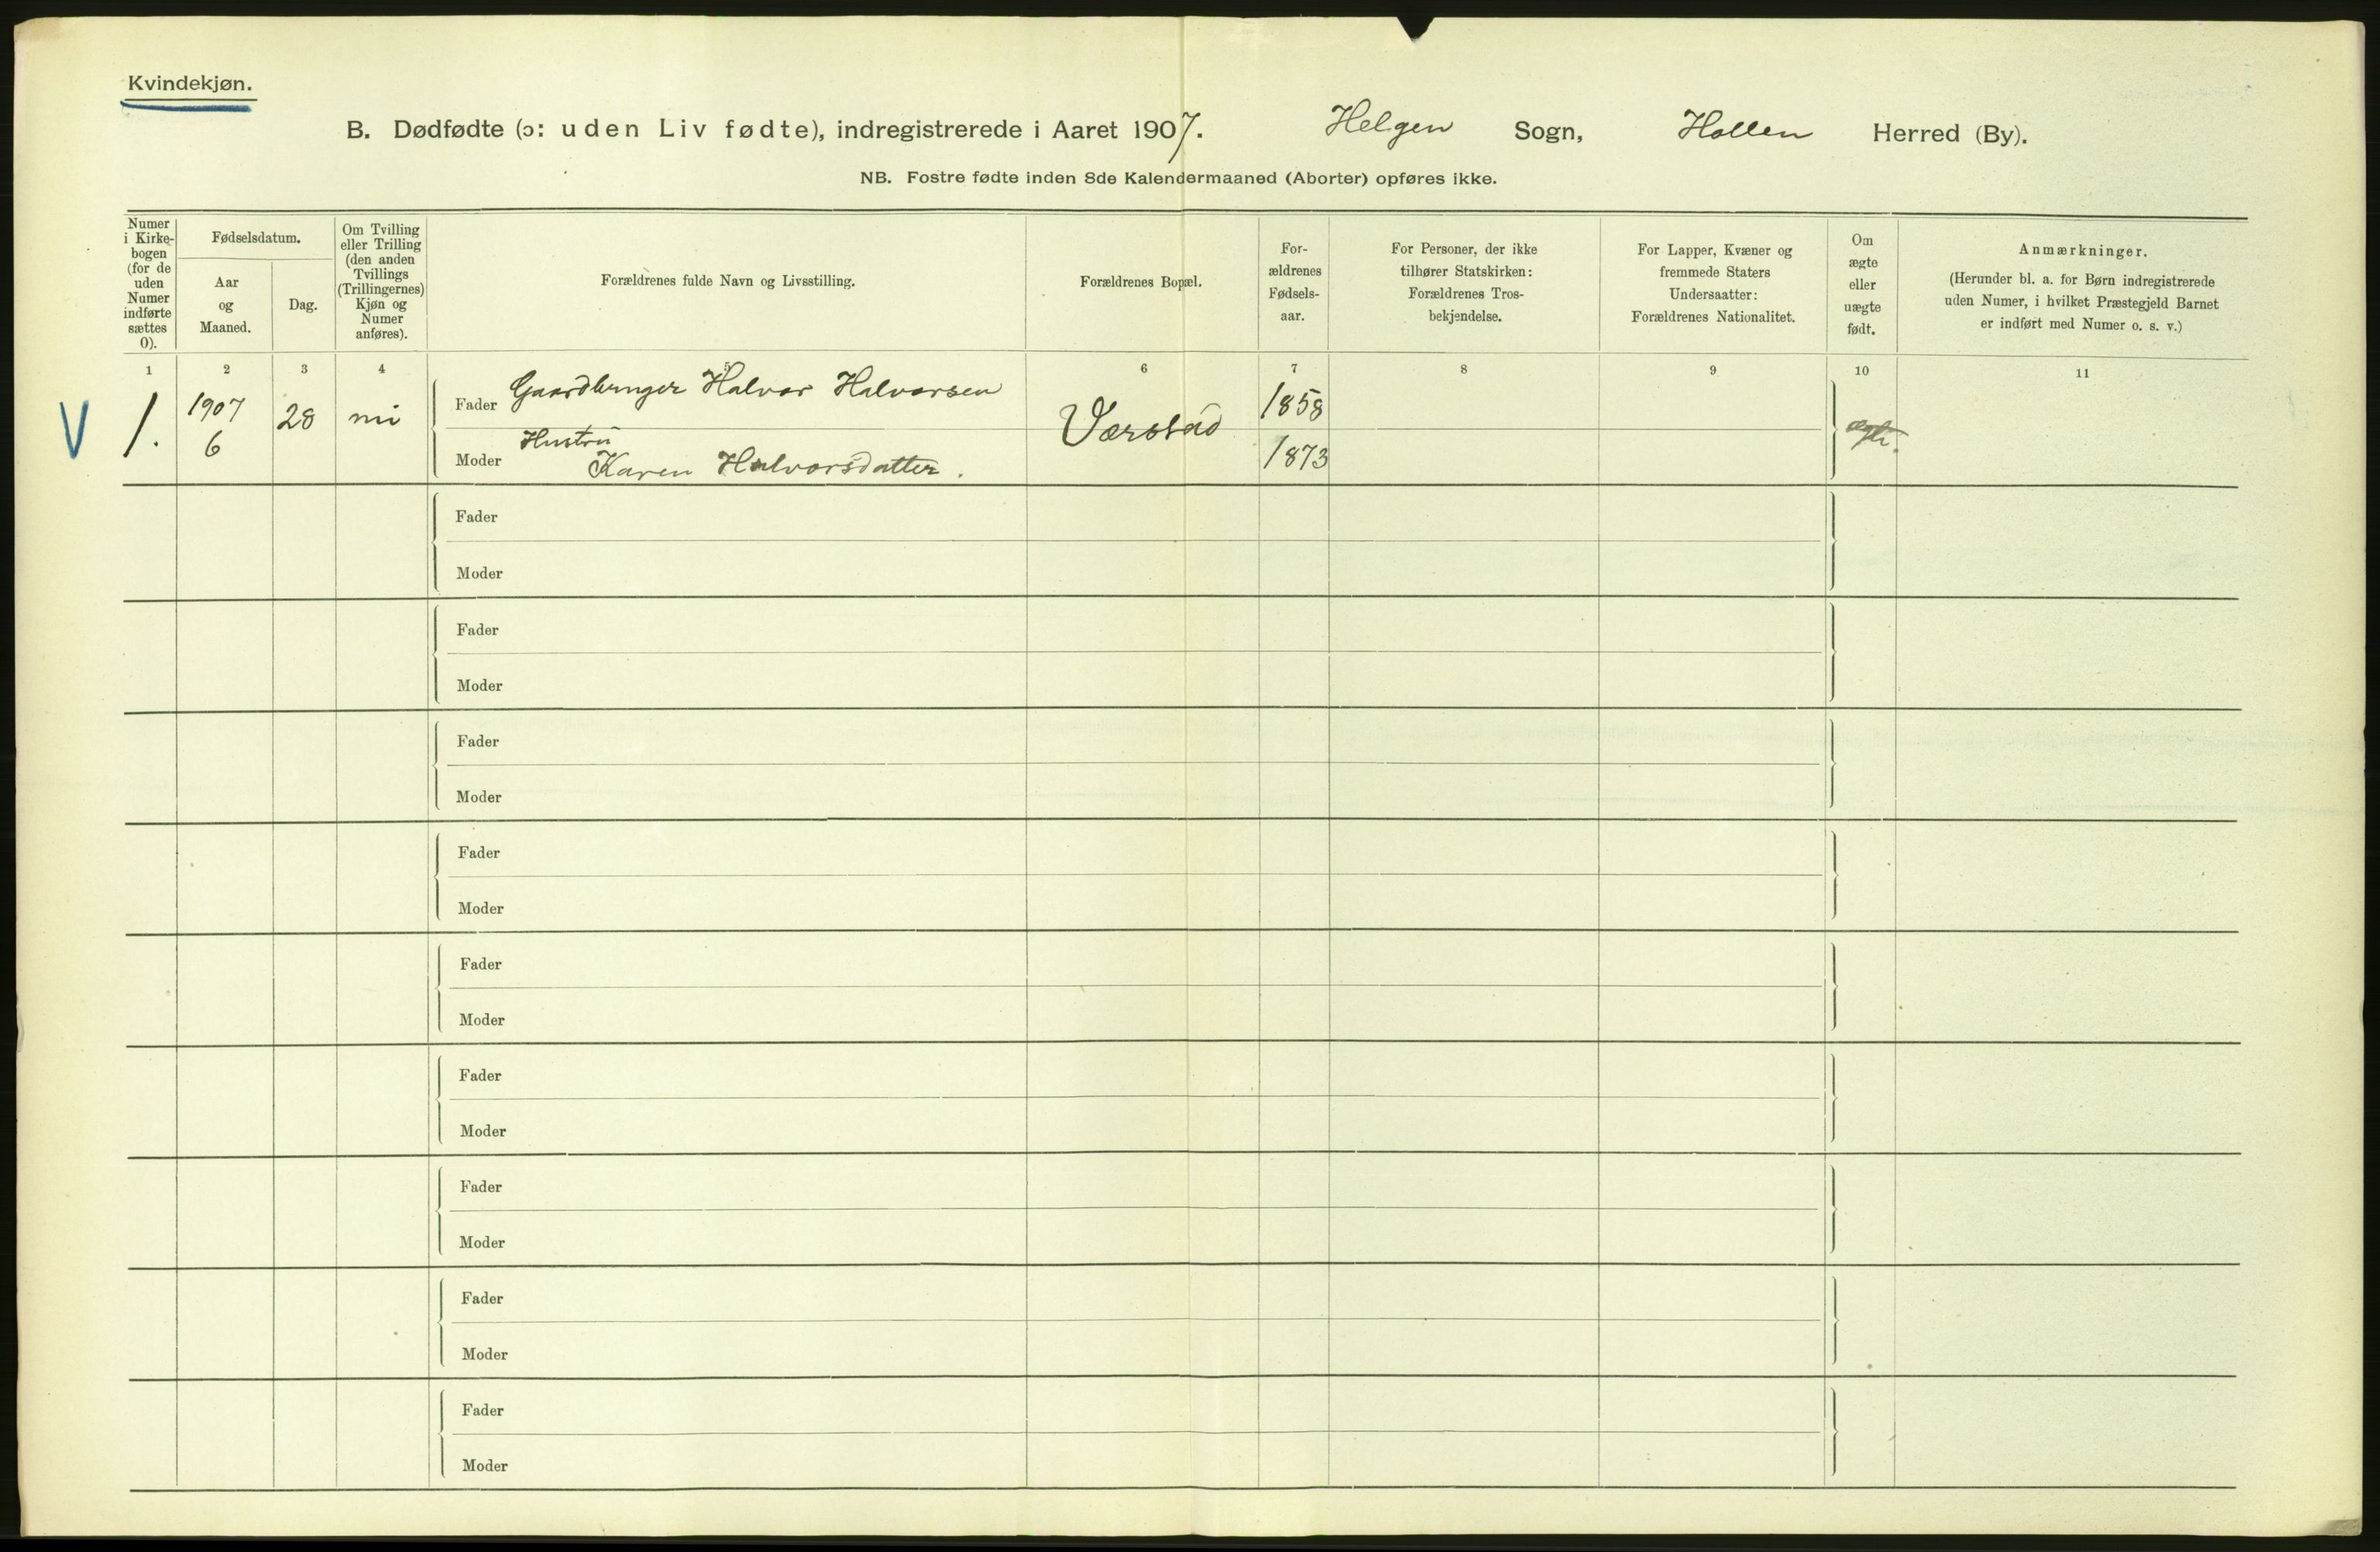 Kvindekjøn.
B. Dødfødte (ɔ: uden Liv fødte), indregistrerede i Aaret 1907. Helgen Sogn, Hollen Herred (By).
NB. Fostre fødte inden 8de Kalendermaaned (Aborter) opføres ikke.
Numer
i Kirke-
bogen
(for de
uden
Numer
indførte
sættes
0).
Fødselsdatum.
Aar
og
Maaned.
Dag.
Om Tvilling
eller Trilling
(den anden
Tvillings
(Trillingernes)
Kjøn og
Numer
anføres).
Forældrenes fulde Navn og Livsstilling.
Forældrenes Bopæl.
For-
ældrenes
Fødsels-
aar.
For Personer, der ikke
tilhører Statskirken:
Forældrenes Tros-
bekjendelse.
For Lapper, Kvæner og
fremmede Staters
Undersaatter:
Forældrenes Nationalitet.
Om
ægte
eller
uægte
født.
Anmærkninger.
(Herunder bl. a. for Børn indregistrerede
uden Numer, i hvilket Præstegjeld Barnet
er indført med Numer o. s. v.)
1 2 3 4 5 6 7 8 9 10 11
V 1. 1907
6
28
Fader Gaardbruger Halvor Halvorsen
Hustru
Moder Karen Halvorsdatter.
Værstad
1858
1873
ægte.
Fader
Moder
Fader
Moder
Fader
Moder
Fader
Moder
Fader
Moder
Fader
Moder
Fader
Moder
Fader
Moder
Fader
Moder